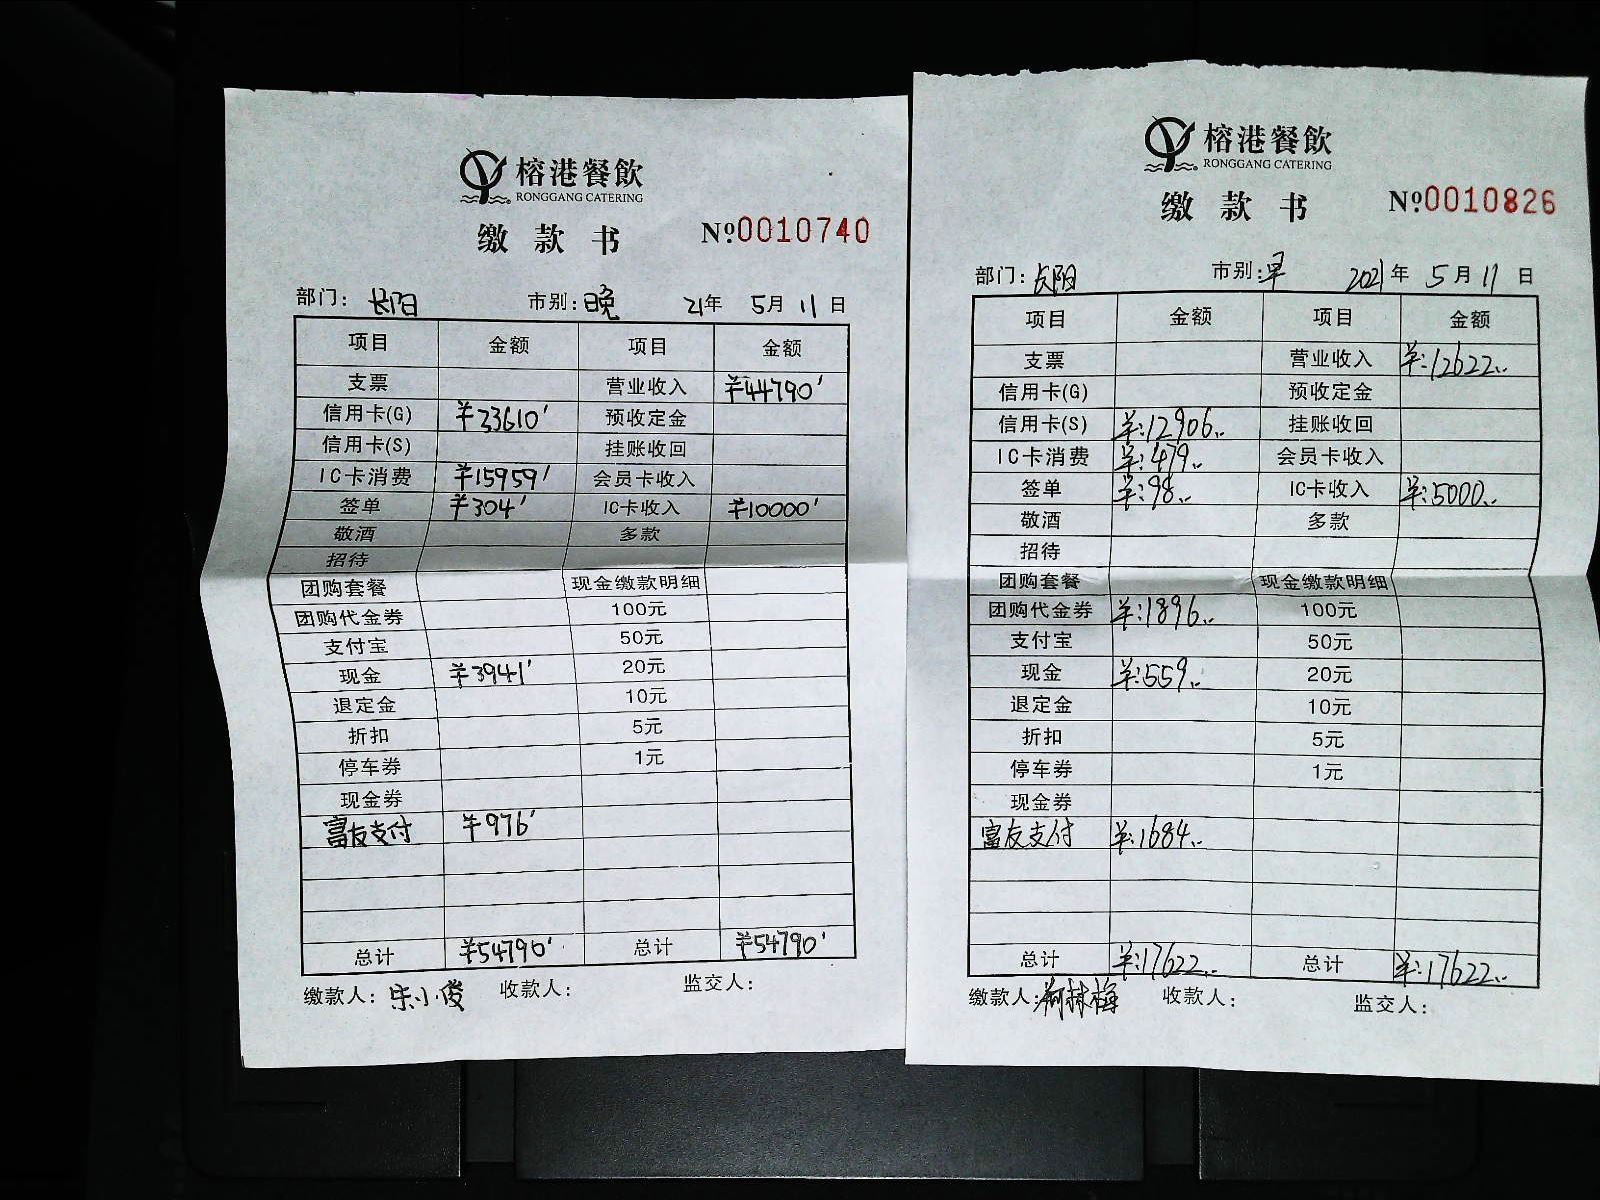 榕港餐飲
RONGGANG CATERING
缴款书 №0010740
部门: 长阳 市别: 晚 21年 5月 11日
项目 金额 项目 金额
支票 营业收入 ¥44790'
信用卡(G) ¥33610' 预收定金
信用卡(S) 挂账收回
IC卡消费 ¥15959' 会员卡收入
签单 ¥304' IC卡收入 ¥10000'
敬酒 多款
招待
团购套餐 现金缴款明细
团购代金券 100元
支付宝 50元
现金 ¥3941' 20元
退定金 10元
折扣 5元
停车券 1元
现金券
富友支付 ¥976'
总计 ¥54790' 总计 ¥54790'
缴款人: 宋小俊 收款人: 监交人:
榕港餐飲
RONGGANG CATERING
缴款书 №0010826
部门: 长阳 市别: 早 2021年 5月 11日
项目 金额 项目 金额
支票 营业收入 ¥:12622..
信用卡(G) 预收定金
信用卡(S) ¥:12906.. 挂账收回
IC卡消费 ¥:479.. 会员卡收入
签单 ¥:98.. IC卡收入 ¥:5000..
敬酒 多款
招待
团购套餐 现金缴款明细
团购代金券 ¥:1896.. 100元
支付宝 50元
现金 ¥:559.. 20元
退定金 10元
折扣 5元
停车券 1元
现金券
富友支付 ¥:1684..
总计 ¥:17622.. 总计 ¥:17622..
缴款人: 收款人: 监交人: